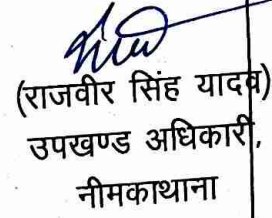 (राजवीर सिंह यादव)
उपखण्ड अधिकारी,
नीमकाथाना